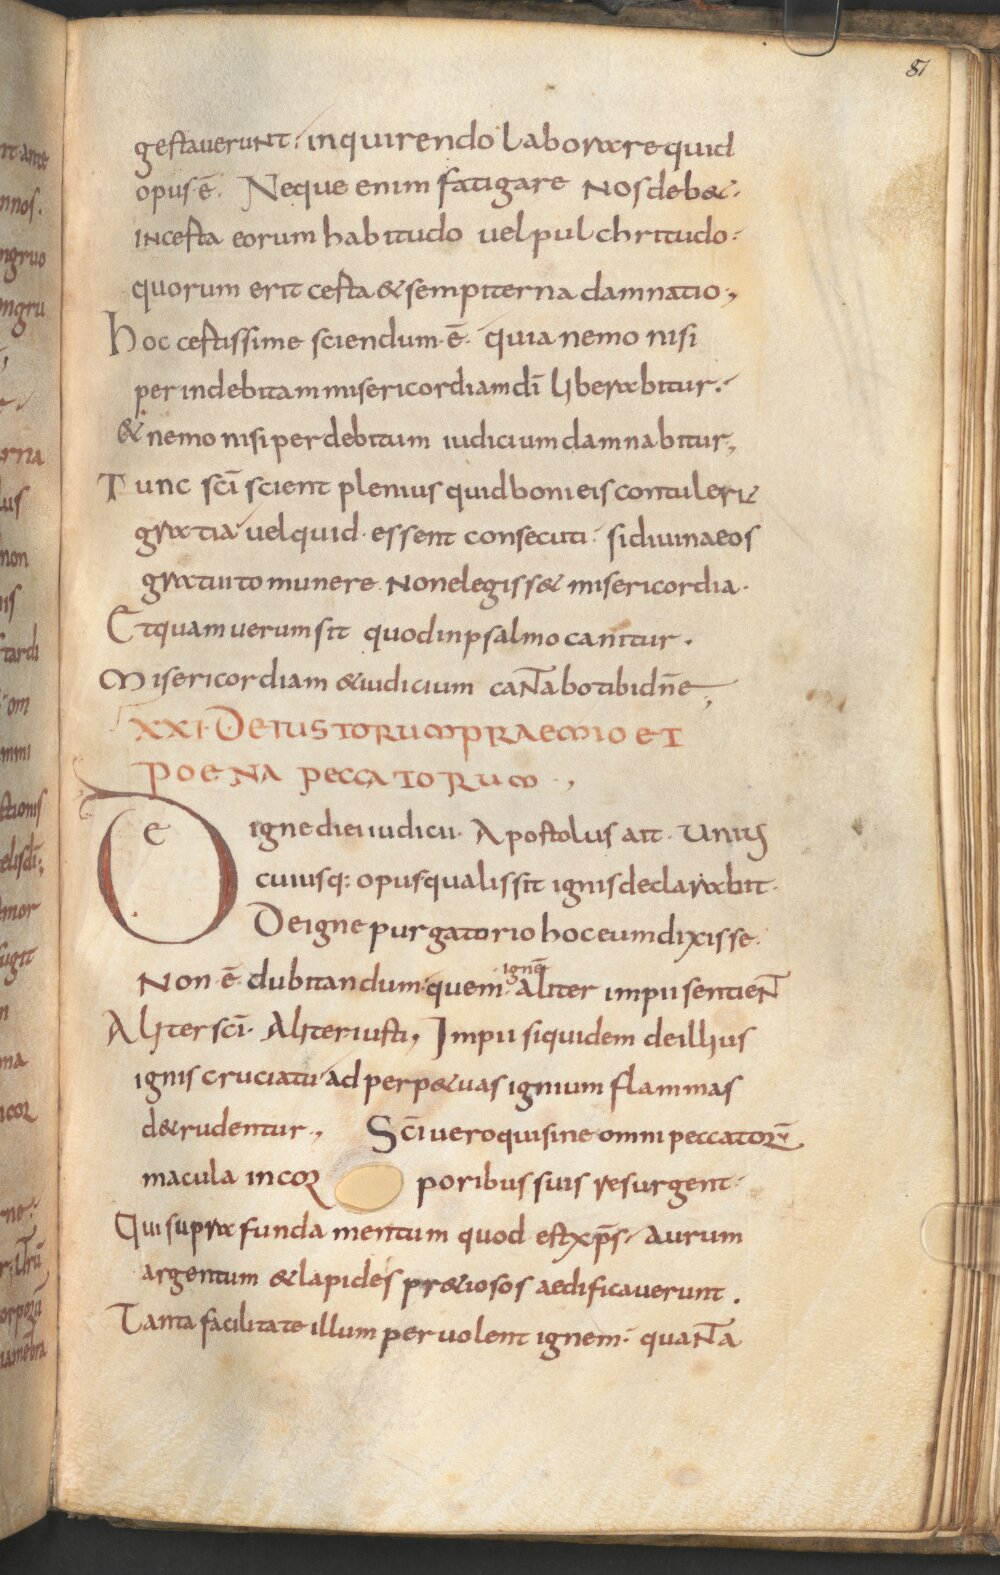 87
gestaverunt. inquirendo laborare quid
opus ē. Neque enim fatigare nos debet.
incesta eorum habitudo vel pulchritudo.
quorum erit cesta & sempiterna damnatio.,
Hoc cestissime sciendum ē. quia nemo nisi
per indebitam misericordiam dī liberabitur.
& nemo nisi per debitum iudicium damnabitur.,
Tunc scī scient plenius quid boni eis contulerit
gratia vel quid essent consecuti. si divina eos
gratuito munere non elegisset misericordia.
Et quam verum sit quod in psalmo canitur.
Misericordiam & iudicium cantabo tibi dn̄e.,
XXI. De iustorum praemio et
poena peccatorum.,
De igne diei iudicii. Apostolus ait. Unius
cuiusq: opus qualis sit ignis declarabit.
De igne purgatorio hoc eum dixisse.
Non ē dubitandum. quem ignē aliter impii sentient
Aliter scī. Aliter iusti., Impii siquidem de illius
ignis cruciatu ad perpetuas ignium flammas
detrudentur., Scī vero qui sine omni peccatorū
macula incor poribus suis resurgent.
Qui supra fundamentum quod est xp̄s. Aurum
argentum & lapides pretiosos aedificaverunt.
Tanta facilitate illum pervolent ignem. quanta